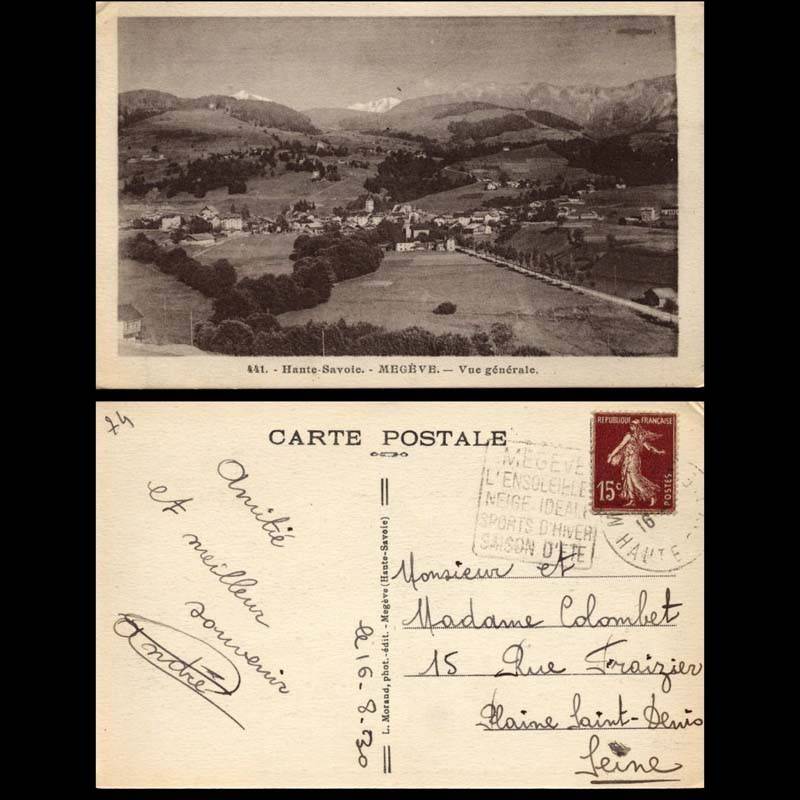 441. - Haute-Savoie. - MEGÈVE. — Vue générale.
74
CARTE POSTALE
MEGÈVE
L'ENSOLEILLÉE
NEIGE IDÉALE
SPORTS D'HIVER
SAISON D'ÉTÉ
REPUBLIQUE FRANÇAISE
15c
POSTES
16
HAUTE-
Amitié
et meilleur
souvenir
André
le 16-8-30
L. Morand, phot.-édit. - Megève (Haute-Savoie)
Monsieur et
Madame Colombet
15 Rue Fraizier
Plaine Saint-Denis
Seine